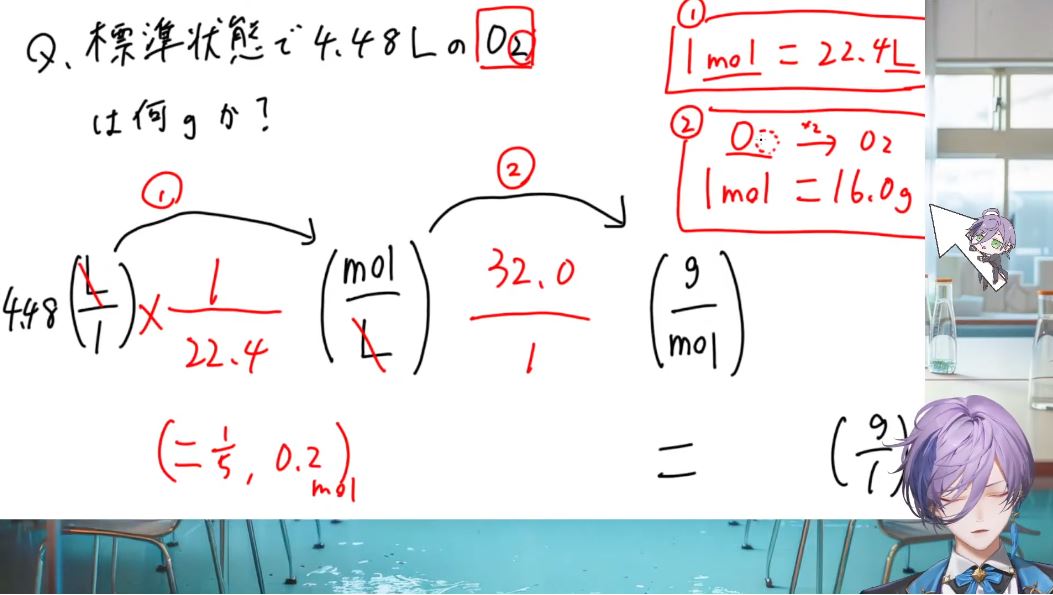 Q. 標準状態で 4.48Lの O2
は何gか?
①
1mol = 22.4L
②
O ×2→ O2
1mol = 16.0g
① ②
4.48 (L/1) × 1/22.4 (mol/L) 32.0/1 (g/mol)
(= 1/5, 0.2)mol
= (g/1)